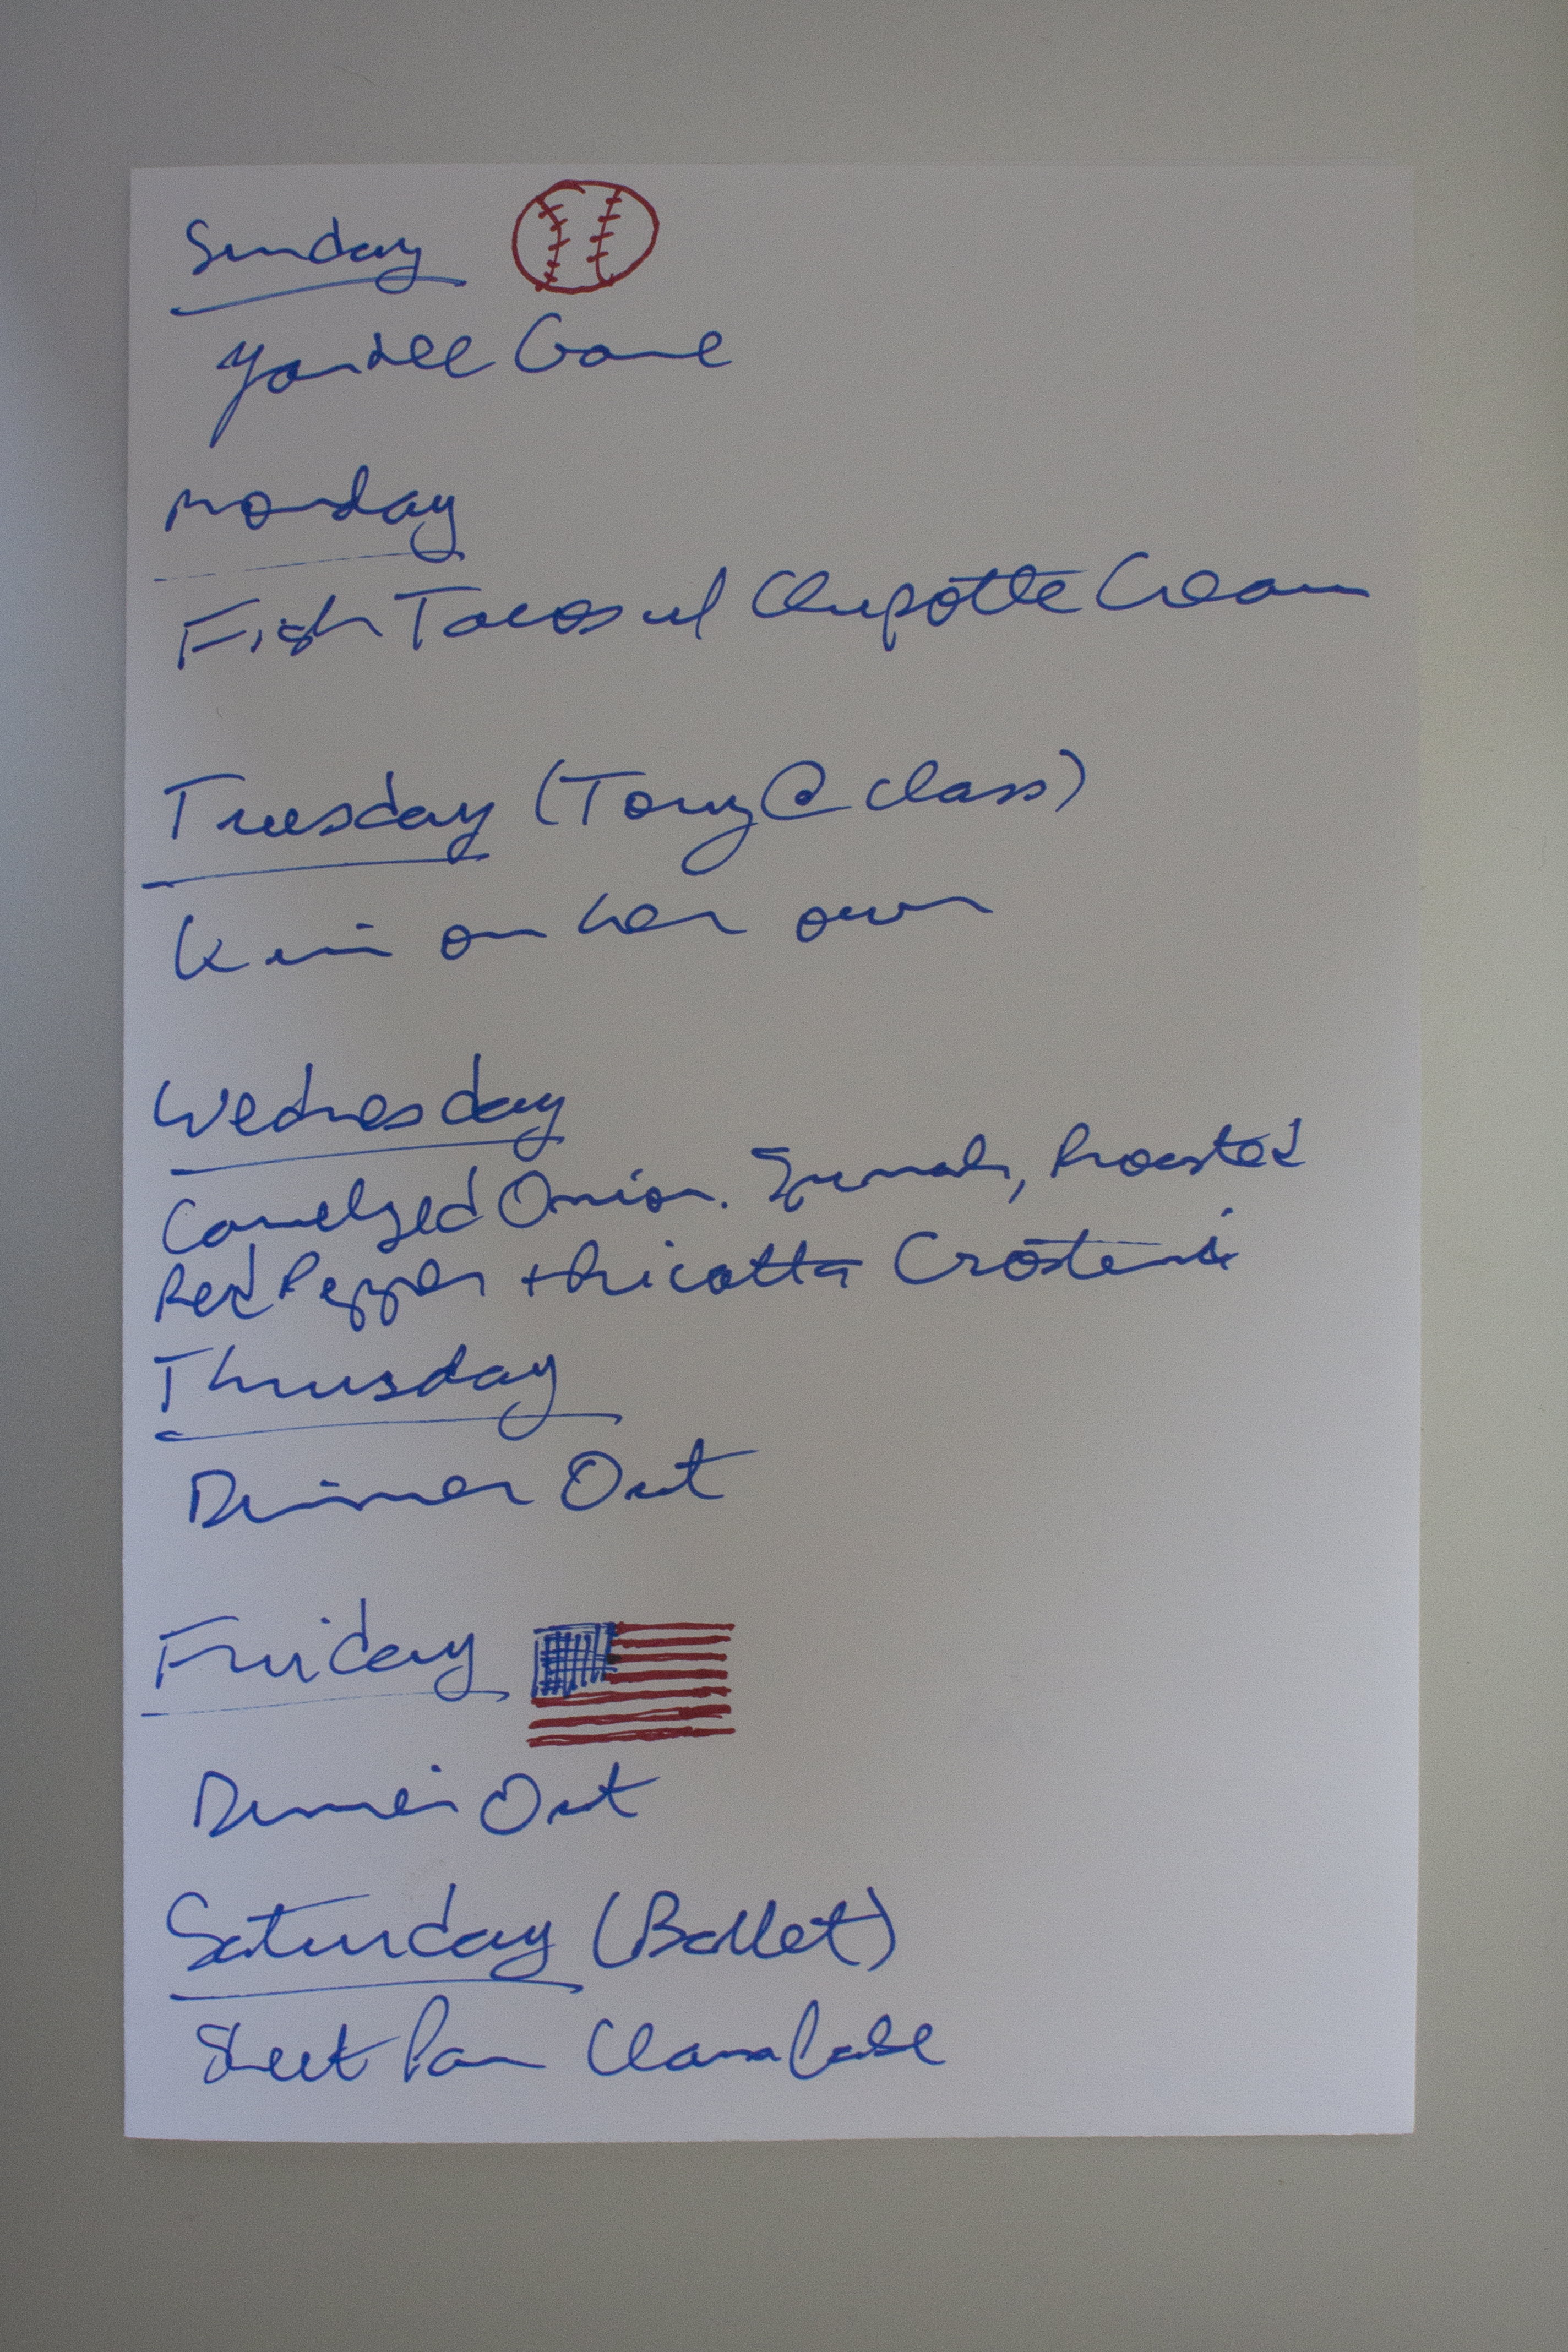 Sunday
Yankee Game
Monday
Fish Tacos w/ Chipotle Cream
Tuesday (Tony @ class)
Kim on her own
Wednesday
Carmelized Onion. Spinach, Roasted
Red Pepper + Ricotta Crostini
Thursday
Dinner Out
Friday
Dinner Out
Saturday (Ballet)
Sheet Pan Clam Bake